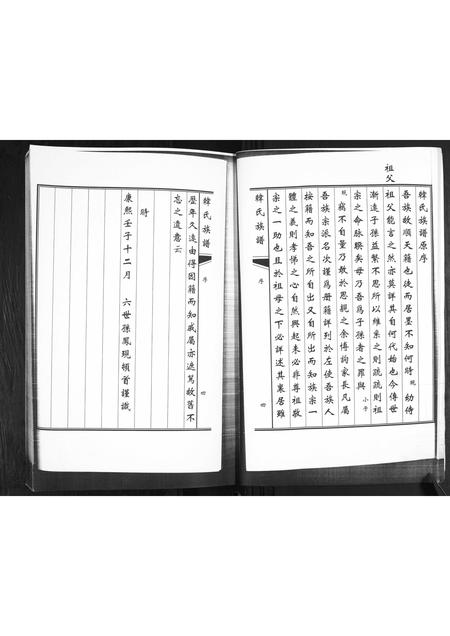 韓氏族譜原序
吾族故順天籍也徙而居墨不知何時現幼侍
祖父
祖父能言之然亦莫詳其自何代始也今傳世
漸遠子孫益繁不思所以維系之則疏疏則祖
宗之命脉睽矣毋乃吾為子孫者之罪與小子
現竊不自量乃敢於思親之餘博詢家長凡屬
吾族宗派名次謹為册籍詳列於左使吾族人
按籍而知吾之所自出又自所出而知族宗一
體之義則孝悌之心自然興起未必非尊祖敬
宗之一助也且於祖母之下必詳述其裏居雖
韓氏族譜
序
四
韓氏族譜
序
四
歷年久遠由得因籍而知戚屬亦遮篤故舊不
忘之遺意云
時
康熙壬子十二月 六世孫鳳現頓首謹識